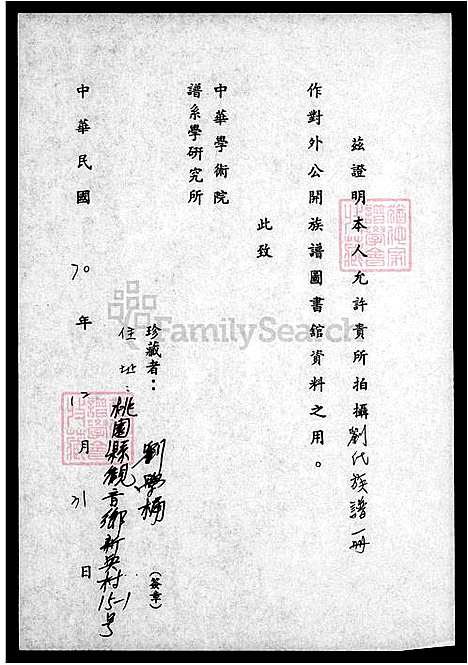 茲證明本人允許貴所拍攝劉氏族譜一冊
作對外公開族譜圖書館資料之用。
此致
中華學術院
譜系學研究所
珍藏者：劉學桶（簽章）
住址：桃園縣觀音鄉新興村15-1號
中華民國70年12月31日
FamilySearch